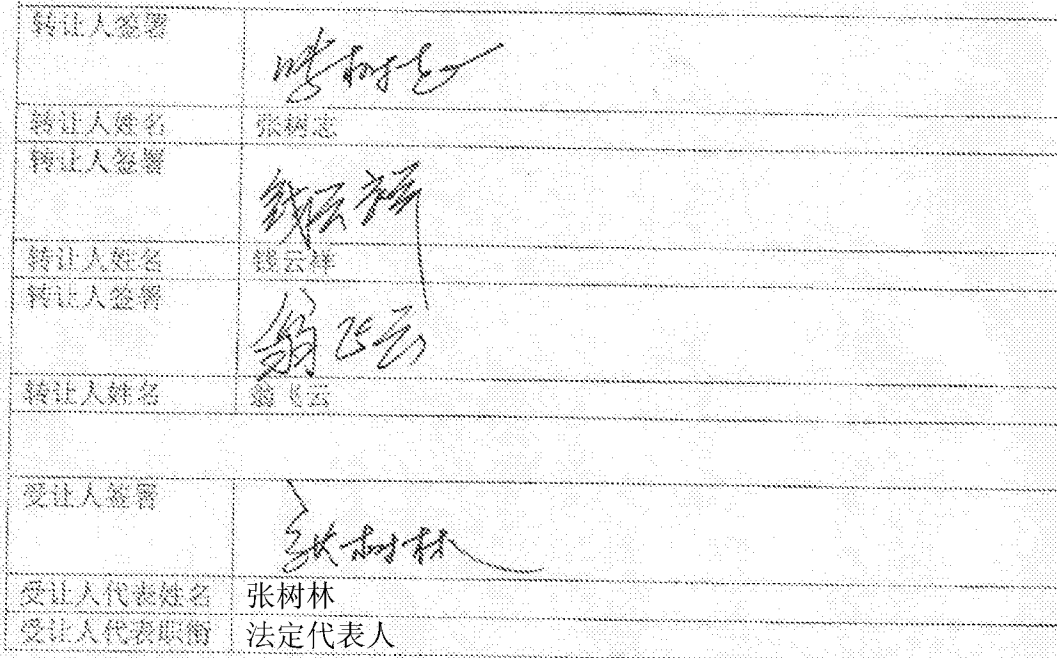 转让人签署
转让人姓名 张树志
转让人签署 钱云祥
转让人姓名 钱云祥
转让人签署 翁飞云
转让人姓名 翁飞云
受让人签署 张树林
受让人代表姓名 张树林
受让人代表职衔 法定代表人